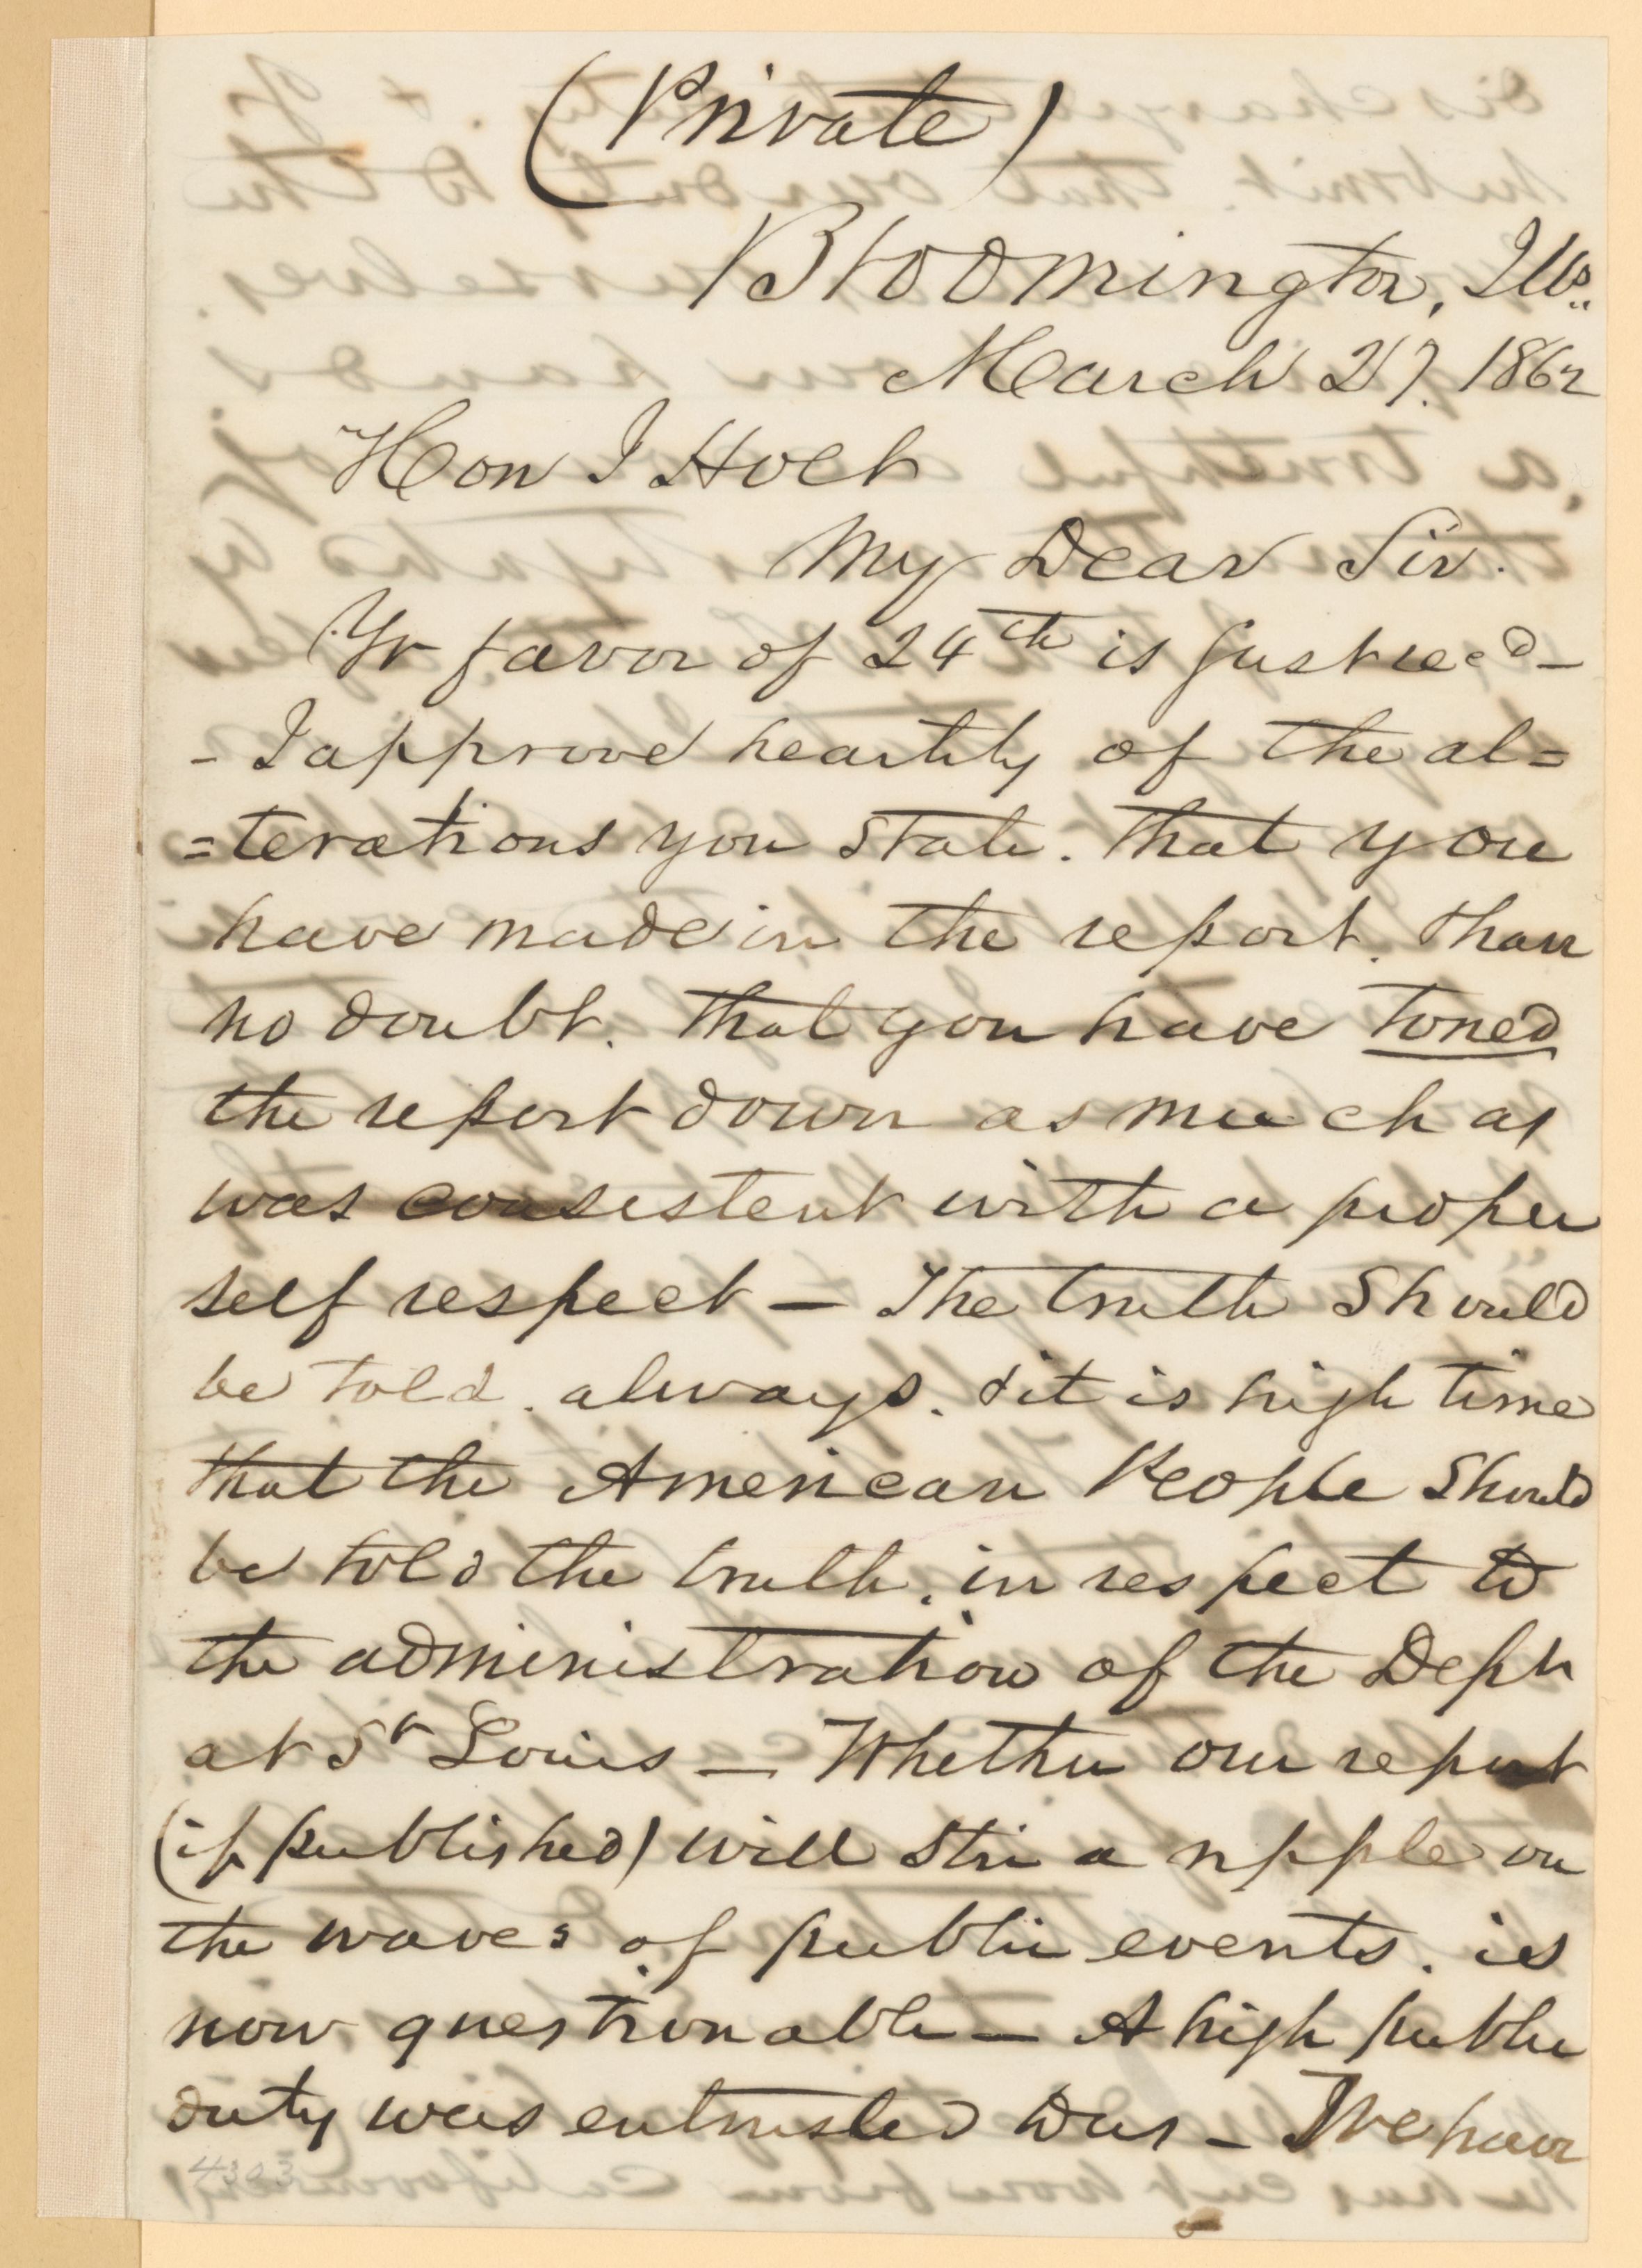 (Private)
Bloomington, Ills.
March 27. 1862
Hon J Holt
My Dear Sir.
Yr favor of 24th is just recd–
– I approve heartily of the al=
=terations you state. that you
have made in the report. I have
no doubt. that you have toned
the report down as much as
was consistent with a proper
self respect – The truth should
be told. always. & it is high time
that the American People should
be told the truth. in respect to
the administration of the Dept
at St Louis – Whether our report
(if published) will stir a ripple on
the waves of public events. is
now questionable – A high public
duty was entrusted to us – We have
4303